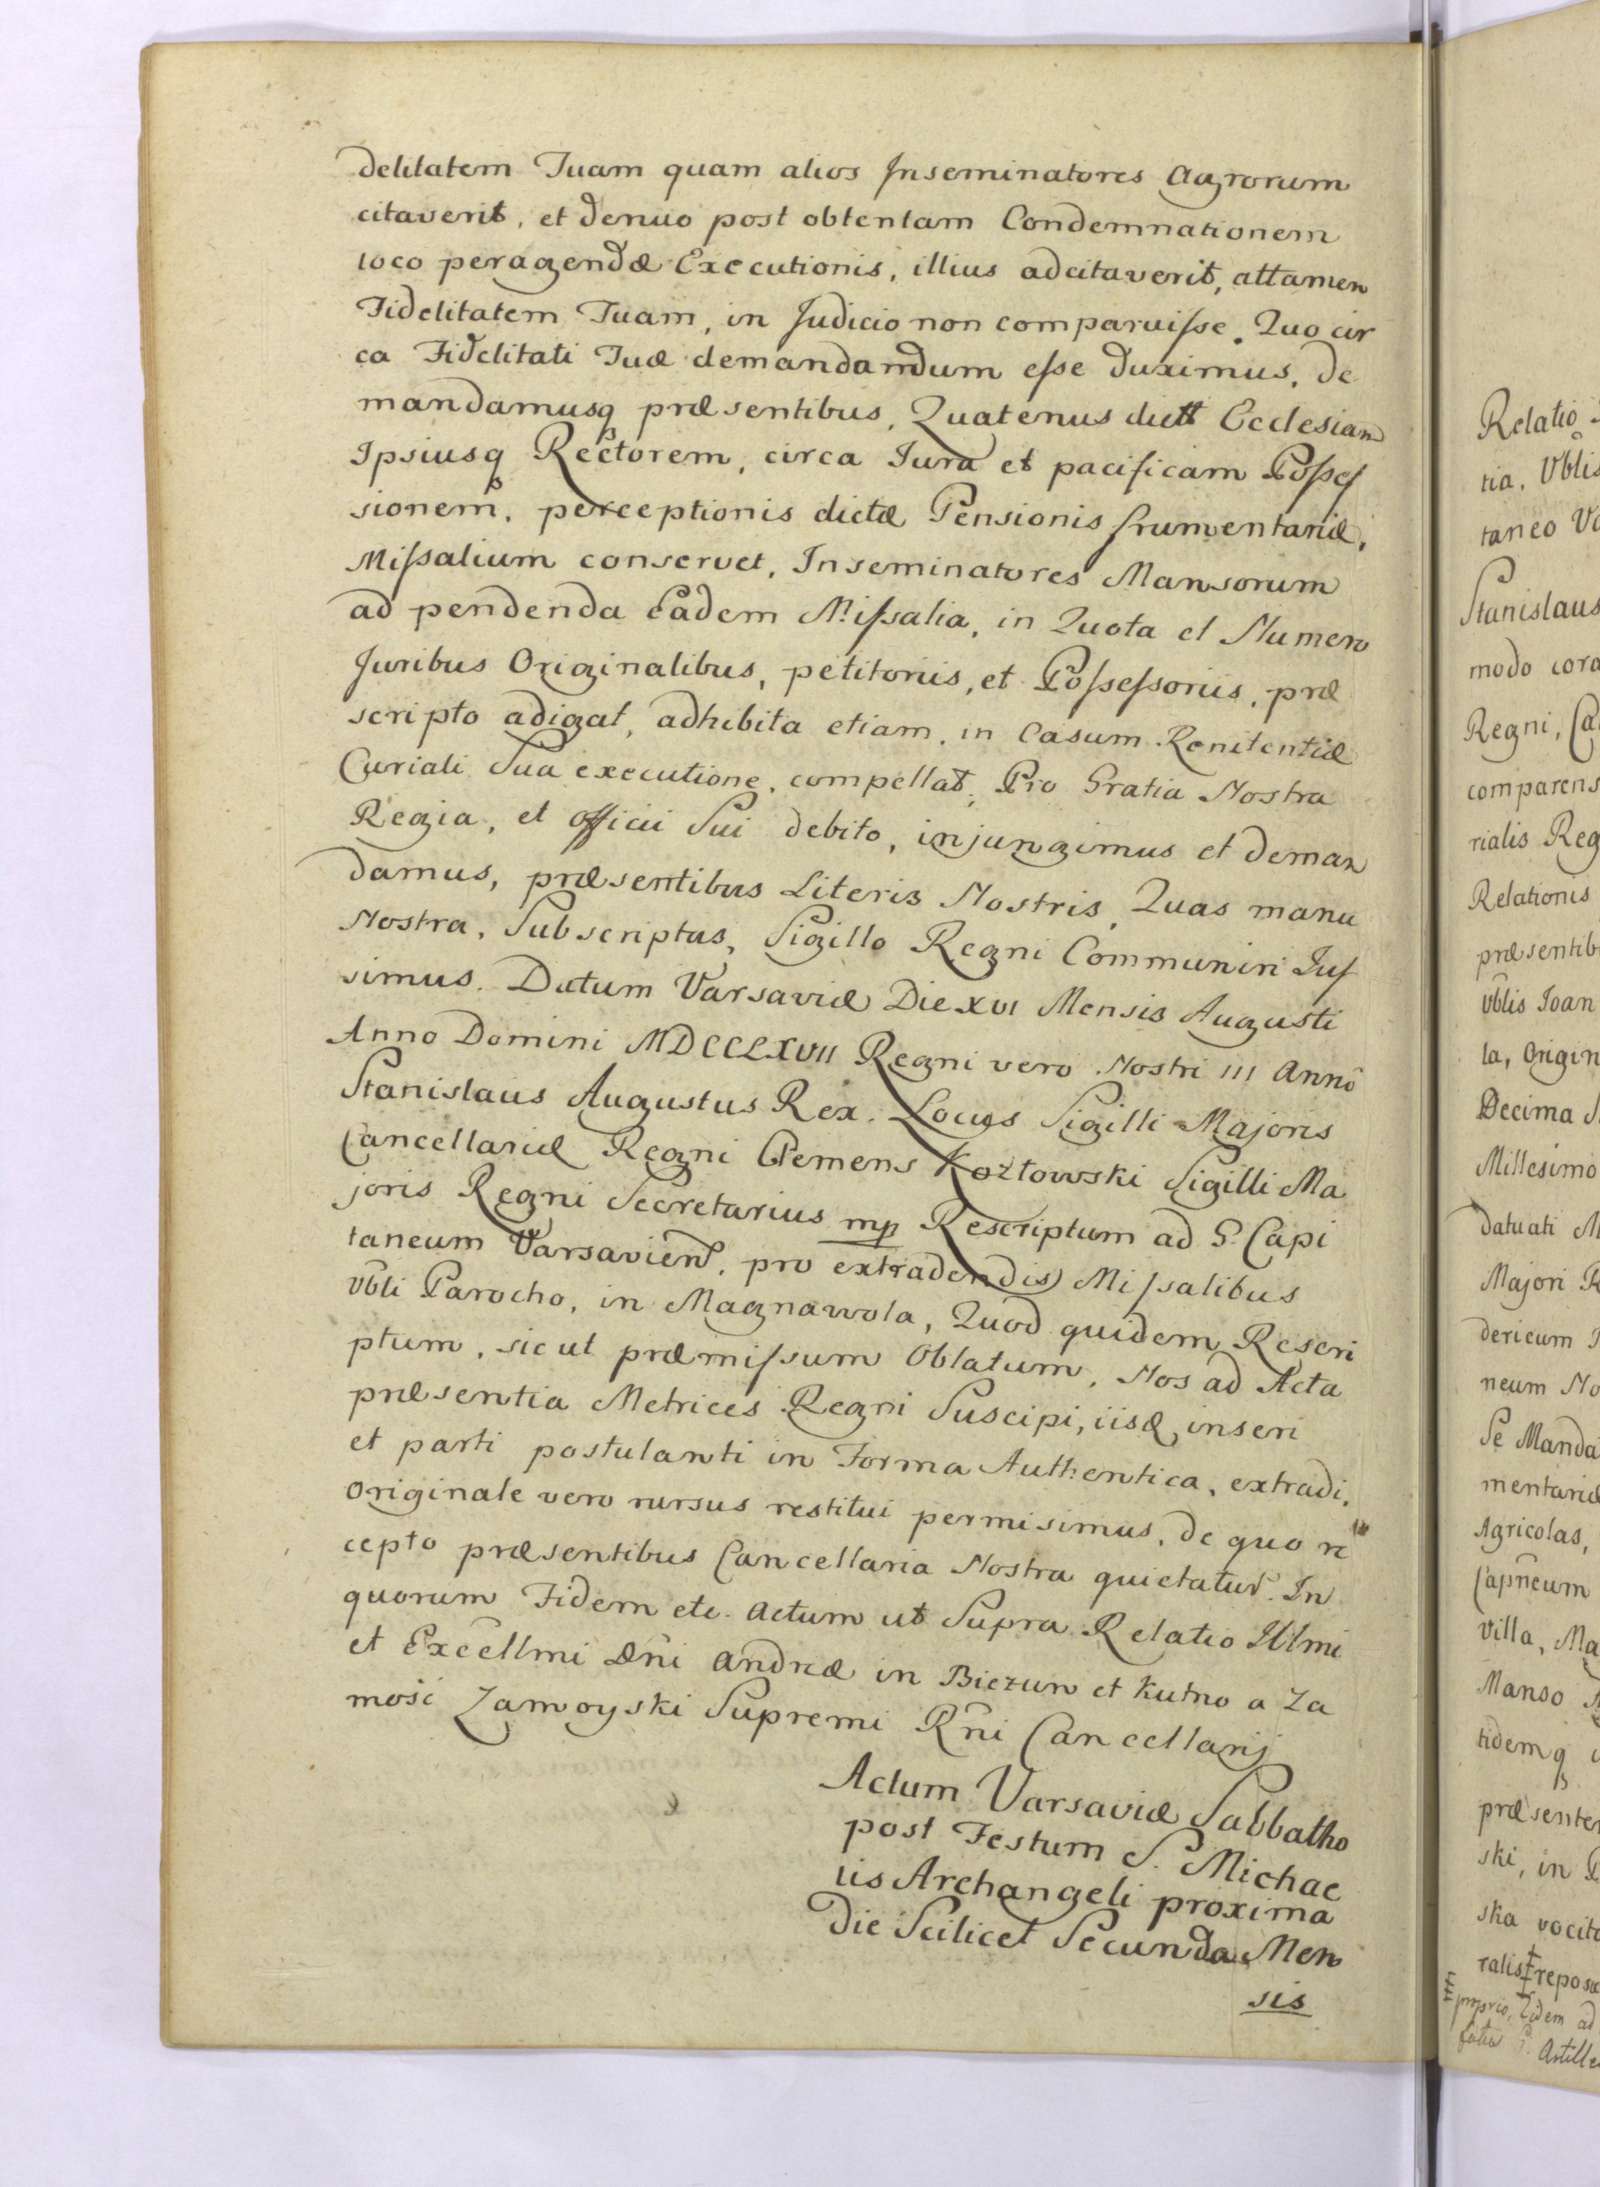 delitatem Tuam quam alios Inseminatores Agrorum
citaverit, et denuo post obtentam Condemnationem
loco peragendæ Executionis, illius adcitaverit, attamen
Fidelitatem Tuam, in Judicio non comparuiſse. Quo cir
ca Fidelitati Tuæ demandandum eſse duximus, de
mandamusq præsentibus, Quatenus dictt Ecclesiam
Ipsiusq Rectorem, circa Jura et pacificam Poſseſ
sionem, perceptionis dictæ Pensionis frumentariæ,
Miſsalium conservet, Inseminatores Mansorum
ad pendenda Eadem Miſsalia, in Quota et Numero
Juribus Originalibus, petitoriis, et Poſseſsoriis, præ
scripto adigat, adhibita etiam, in Casum Renitentiæ
Curiali Sua executione, compellat, Pro Gratia Nostra
Regia, et officii Sui debito, injungimus et deman
damus, præsentibus Literis Nostris, Quas manu
Nostra, Subscriptas, Sigillo Regni Communiri Juſ
simus. Datum Varsaviæ Die XVI Mensis Augusti
Anno Domini MDCCLXVII Regni vero Nostri III Anno
Stanislaus Augustus Rex. Locus Sigilli Majoris
Cancellariæ Regni Clemens Kozłowski Sigilli Ma
joris Regni Secretarius mp Rescriptum ad G. Capi
taneum Varsavien, pro extradendis Miſsalibus
Vbli Parocho, in Magnawola, Quod quidem Rescri
ptum, sicut præmiſsum Oblatum, Nos ad Acta
præsentia Metrices Regni Suscipi, iisq inseri
et parti postulanti in Forma Authentica, extradi,
Originale vero rursus restitui permisimus, de quo re
cepto præsentibus Cancellaria Nostra quietatur. In
quorum Fidem etc. Actum ut Supra Relatio Illmi
et Excellmi Dni Andreæ in Biezun et Kutno a Za
mość Zamoyski Supremi Rni Cancellarij
Actum Varsaviæ Sabbatho
post Festum S. Michae
lis Archangeli proxima
Die Scilicet Secunda Men
sis
Relatio
tia. Vblis
taneo
Stanislaus
modo cora
Regni, Ca
comparens
rialis Reg
Relationis
præsentib
Vblis Joan
la, Origin
Decima
Millesimo
datuati M
Majori R
dericum
neum No
Se Manda
mentariæ
Agricolas,
Capneum
villa, Ma
Manso
tidemq
præsenten
ski, in
ska vocit
ralis repos
proprio, Eidem ad
Artille